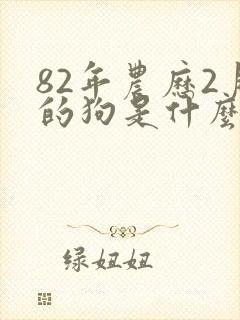 82年農历2
的狗是什麼
绿妞妞